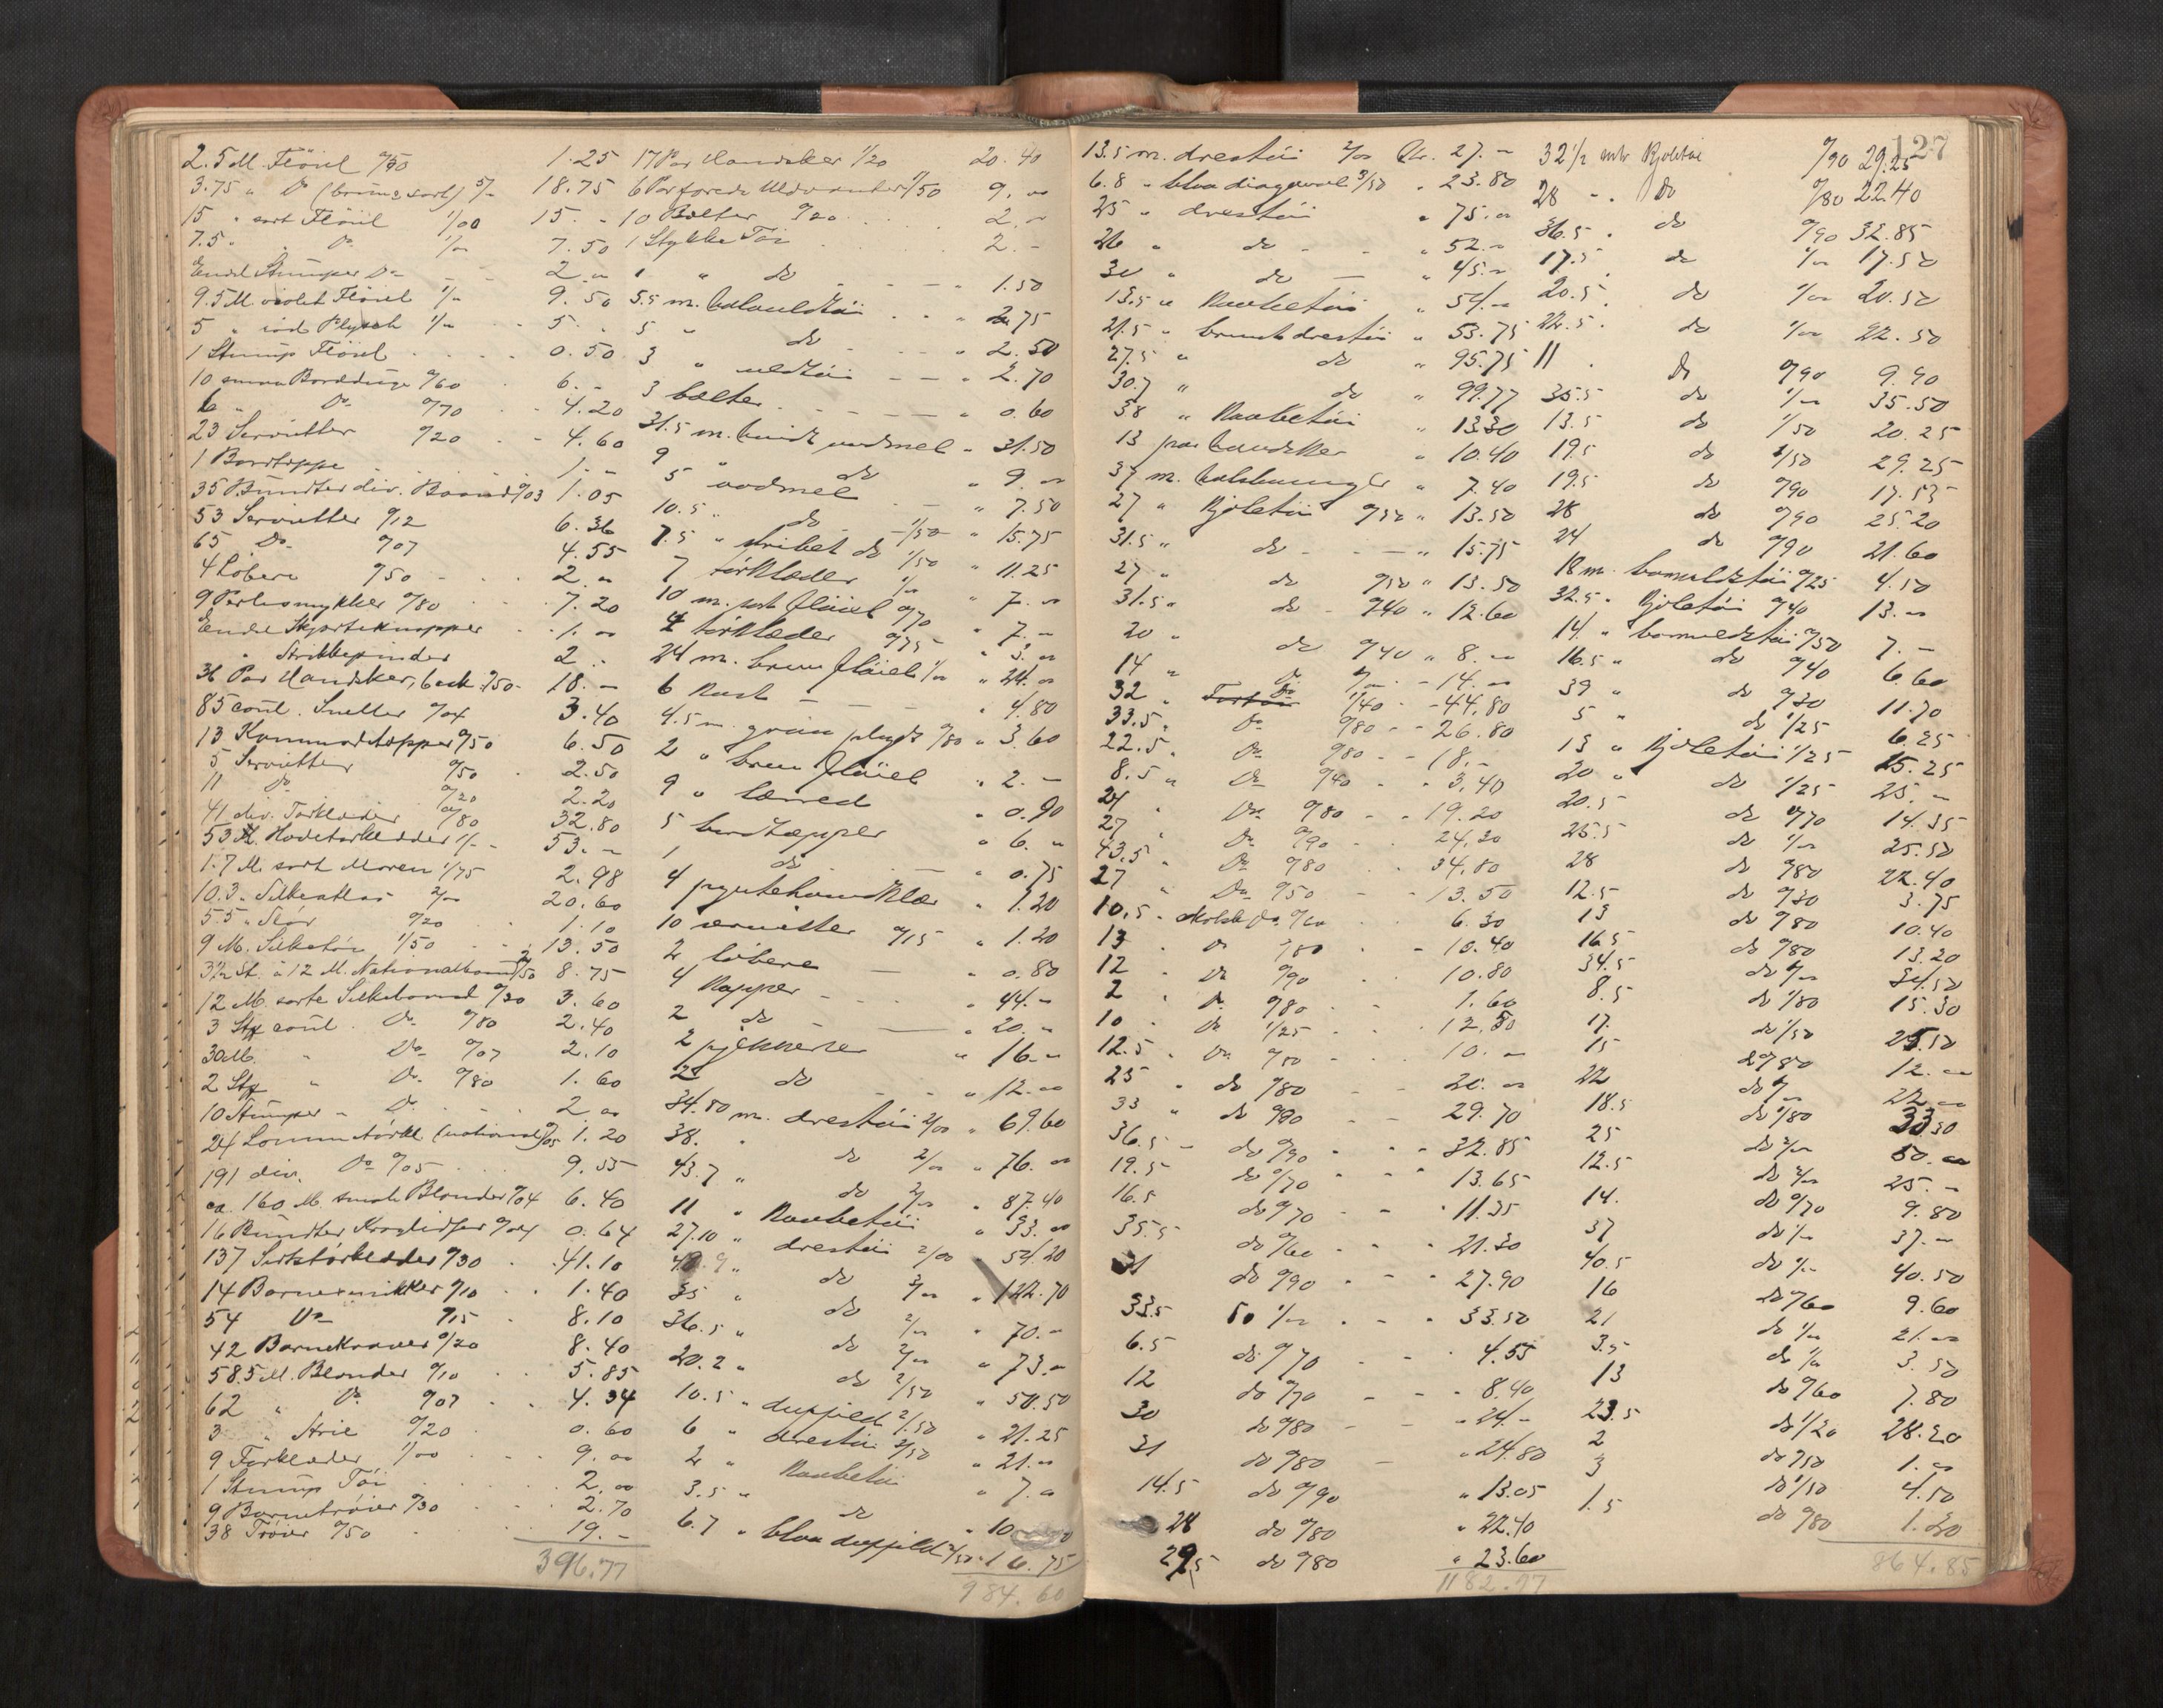 2.5 M. Flöiel 0/50 1.25
3.75 " Do (brun & sort) 5/- 18.75
15 " sort Flöiel 1/00 15. -
7.5 " Do 1/- 7.50
Endel Stumper Do - - 2. "
9.5 M. violet Flöiel 1/- 9.50
5 " röd Plysch 1/- 5. -
1 Stump Flöiel 0.50
10 smaa Bordduge 0/60 6. -
6 " Do 0/70 4.20
23 Servietter 0/20 4.60
1 Bordteppe 1. -
35 Bundter div. Baand 0/03 1.05
53 Servietter 0/12 6.36
65 Do 0/07 4.55
4 Löbere 0/50 2. "
9 Perlesmykker 0/80 7.20
Endel Skjorteknapper 1. 00
" Strikkepinder 2. -
36 Par Handsker, besk. 0/50 18. -
85 coul. Sneller 0/04 3.40
13 Kommodetepper 0/50 6.50
5 Servietter 0/50 2.50
11 Do 0/20 2.20
41 div. Törklæder 0/80 32.80
53 H. Hovetörklæder 1/- 53. -
1.7 M. sort Moren 1/75 2.98
10.3 " Silkeatlas 2/00 20.60
5.5 " Slör 0/20 1.10
9 M. Silketöi 1/50 13.50
3 1/2 St. à 12 M. Nationalbaand 2/50 8.75
12 M. sorte Silkebaand 0/30 3.60
3 Stk coul. Do 0/80 2.40
30 M. " Do 0/07 2.10
2 Stk " Do 0/80 1.60
10 Stumper " Do 2 00
24 Lommetörkl. (national) 0/05 1.20
191 div. Do 0/05 9.55
ca. 160 M. smale Blonder 0/04 6.40
16 Bundter 0/04 0.64
137 Sirtstörklæder 0/30 41.10
14 Barnesmikker 0/10 1.40
54 Do 0/15 8.10
42 Barnekraver 0/20 8.40
58.5 M. Blonder 0/10 5.85
62 " Do 0/07 4.34
3 " Strie 0/20 0.60
9 Forklæder 1/00 9. 00
1 Stump Töi 2. 00
9 Barnetröier 0/30 2.70
38 Tröier 0/50 19. -
396.77
17 Par Handsker 1/20 20.40
6 Par forede Uldvanter 1/50 9. 00
10 Belter 0/20 2. 00
1 Stykke Töi 2. -
1 " do 1.50
5.5 m. halvuldtöi 2.75
5 " do 2.50
3 " uldtöi 2.70
3 belter 0.60
31.5 m. hvidt vadmel 31.50
9 " do 9. 00
5 " vadmel 7.50
10.5 " do 1/50 15.75
7.5 " stribet do 1/50 11.25
7 törklæder 1/- 7. 00
10 m. sort flöiel 0/70 7. -
4 törklæder 0/75 3. 00
24 m. brun flöiel 1/00 24. 00
6 4.80
4.5 m. grön plyds 0/80 3.60
2 " brun flöiel 2. -
9 " lærred 0.90
5 bordtæpper 6. "
1 do 0.75
4 pyntehandklær 1.20
10 servietter 0/15 1.20
2 löbere 0.80
4 Kapper 44. -
2 do 20. -
2 pjekkerter 16. -
2 do 12. 00
34.80 m. drestöi 2/00 69.60
38. " do 2/00 76. 00
43.7 " do 2/00 87.40
11 " Kaabetöi 33. 00
27.10 " drestöi 2/00 54.20
40.9 " do 3/00 122.70
35 " do 2/00 70. -
36.5 " do 2/00 73. 00
20.2 " do 2/50 50.50
10.5 " duffeld 2/50 21.25
6 " drestöi 3/50 21. 00
2 " Kaabetöi 7. 00
3.5 " do 10
6.7 " blaa duffeld 2/50 16.75
984.60
127
13.5 m. drestöi 2/00 Kr. 27. -
6.8 " blaa diagonal 3/50 " 23.80
25 " drestöi " 75. 00
26 " do " 52. 00
30 " do " 45. 00
13.5 " Kaabetöi " 54. 00
21.5 " brunt drestöi " 53.75
27.5 " do " 95.75
30.7 " do " 99.77
38 " Kaabetöi " 13.30
13 par handsker " 10.40
37 m. " 7.40
27 " Kjoletöi 0/50 " 13.50
31.5 " do " 15.75
27 " do 0/50 " 13.50
31.5 " do 0/40 " 12.60
20 " do 0/40 " 8. 00
14 " Do 1/00 14. 00
32 " Do 1/40 44.80
33.5 " Do 0/80 26.80
22.5 " Do 0/80 18. -
8.5 " Do 0/40 3.40
24 " Do 0/80 19.20
27 " Do 0/90 24.30
43.5 " Do 0/80 34.80
27 " Do 0/50 13.50
10.5 " skotsk Do 0/60 6.30
13 " Do 0/80 10.40
12 " Do 0/90 10.80
2 " Do 0/80 1.60
10 " Do 1/25 12.50
12.5 " Do 0/80 10. 00
25 " do 0/80 20. 00
33 " do 0/90 29.70
36.5 " do 0/90 32.85
19.5 do 0/70 13.65
16.5 do 0/70 11.35
35.5 do 0/60 21.30
31 do 0/90 27.90
33.5 do 1/00 33.50
6.5 do 0/70 4.55
12 do 0/70 8.40
30 do 0/80 24. -
31 do 0/80 24.80
14.5 do 0/90 13.05
28 do 0/80 22.40
29.5 do 0/80 23.60
1182.77
32 1/2 mtr Kjoletöi 0/90 29.25
28 " Do 0/80 22.40
36.5 " do 0/90 32.85
17.5 " do 1/00 17.50
20.5 " do 1/00 20.50
22.5 " do 1/00 22.50
11 . do 0/90 9.90
35.5 do 1/00 35.50
13.5 do 1/50 20.25
19.5 do 1/50 29.25
19.5 do 0/90 17.55
28 do 0/90 25.20
24 do 0/90 21.60
18 m. bomuldstöi 0/25 4.50
32.5 " Kjoletöi 0/40 13. 00
14 " bomuldstöi 0/50 7. -
16.5 " do 0/40 6.60
39 " do 0/30 11.70
5 " do 1/25 6.25
13 " Kjoletöi 1/25 15.25
20 " do 1/25 25. -
20.5 do 0/70 14.35
25.5 do 1/00 25.50
28 do 0/80 22.40
12.5 do 0/30 3.75
13 do 0/80 10.40
16.5 do 0/80 13.20
34.5 do 1/00 34.50
8.5 do 1/80 15.30
17. do 1/50 25.50
15 do 0/80 12. 00
22 do 1/00 22. 00
18.5 do 1/80 33.30
25 do 2/00 50. 00
12.5 do 2/00 25. -
14. do 0/70 9.80
37 do 1/00 37. -
40.5 do 1/00 40.50
16 do 0/60 9.60
21 do 1/00 21. 00
3.5 do 1/00 3.50
13 do 0/60 7.80
23.5 do 1/20 28.20
2 do 0/50 1. 00
3 do 1/50 4.50
1.5 do 0/80 1.20
864.85